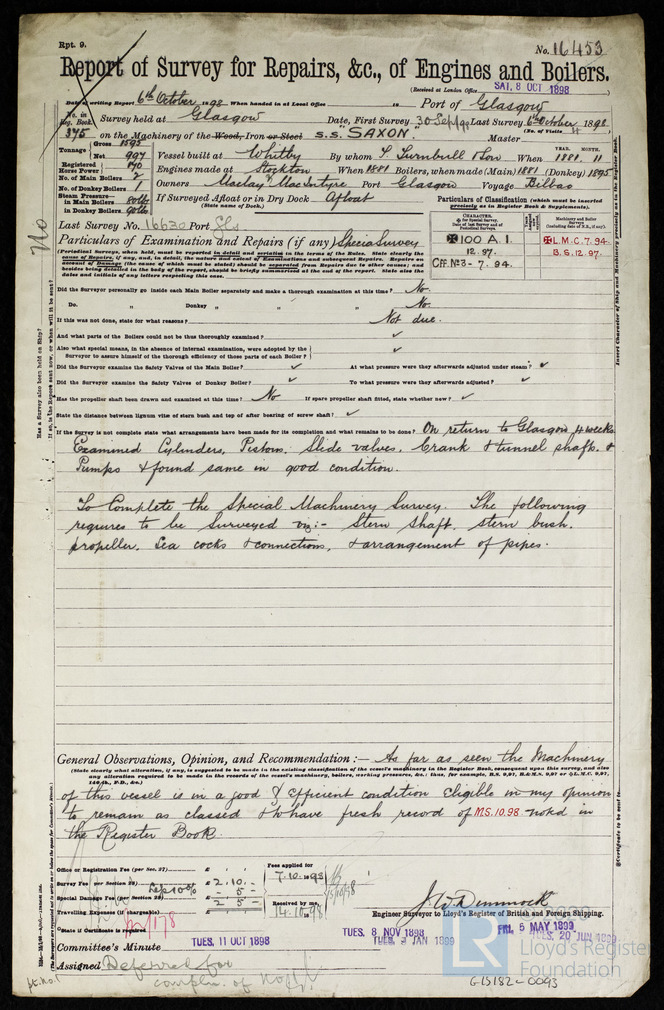 Rpt. 9.
No. 16453
Report of Survey for Repairs, &c., of Engines and Boilers.
(Received at London Office SAT. 8 OCT 1898
Date of writing Report 6th October 1898 When handed in at Local Office 18 Port of Glasgow
No. in Reg. Book. Survey held at Glasgow Date, First Survey 30 Sep/98 Last Survey 6th October 1898
(No. of Visits 4)
375 on the Machinery of the Wood, Iron or Steel s.s. "SAXON" Master
Tonnage Gross 1595
Net 997
Vessel built at Whitby By whom T. Turnbull & Son When 1881 YEAR. 11 MONTH.
Registered Horse Power 140
Engines made at Stockton When 1881 Boilers, when made (Main) 1881 (Donkey) 1895
No. of Main Boilers 2
No. of Donkey Boilers 1
Owners Maclay MacIntyre Port Glasgow Voyage Bilbao
Steam Pressure
in Main Boilers 80 lb
in Donkey Boilers 90 lb
If Surveyed Afloat or in Dry Dock Afloat
(State name of Dock.)
Particulars of Classification (which must be inserted precisely as in Register Book & Supplements).
Last Survey No. 16630 Port Gls
CHARACTER.
Machinery and Boiler Surveys
✠ 100 A.1.
12.97.
Cff No3 - 7.94.
✠ L.M.C. 7.94.
B.S. 12.97.
Particulars of Examination and Repairs (if any) Special Survey
(Periodical Surveys, when held, must be reported in detail and seriatim in the terms of the Rules. State clearly the
cause of Repairs, if any, and, in detail, the nature and extent of Examinations and subsequent Repairs. Repairs on
account of Damage (the cause of which must be stated) should be separated from Repairs due to other causes; and
besides being detailed in the body of the report, should be briefly summarised at the end of the report. State also the
dates and initials of any letters respecting this case.
Did the Surveyor personally go inside each Main Boiler separately and make a thorough examination at this time? No.
Do. " Donkey " " " No.
If this was not done, state for what reasons? Not due.
And what parts of the Boilers could not be thus thoroughly examined? ✓
Also what special means, in the absence of internal examination, were adopted by the
Surveyor to assure himself of the thorough efficiency of those parts of each Boiler? ✓
Did the Surveyor examine the Safety Valves of the Main Boiler? ✓ At what pressure were they afterwards adjusted under steam? ✓
Did the Surveyor examine the Safety Valves of Donkey Boiler? ✓ To what pressure were they afterwards adjusted? ✓
Has the propeller shaft been drawn and examined at this time? No If spare propeller shaft fitted, state whether new? ✓
State the distance between lignum vitæ of stern bush and top of after bearing of screw shaft? ✓
If the Survey is not complete state what arrangements have been made for its completion and what remains to be done? On return to Glasgow, 4 weeks
Examined Cylinders, Pistons, Slide valves, Crank & tunnel shafts, &
Pumps & found same in good condition.
To Complete the Special Machinery Survey. The following
requires to be Surveyed viz:- Stern Shaft, stern bush,
propeller, Sea cocks & connections, & arrangement of pipes.
General Observations, Opinion, and Recommendation :— As far as seen the Machinery
(State clearly what alteration, if any, is suggested to be made in the existing classification of the vessel's machinery in the Register Book, consequent upon this survey, and also
any alteration required to be made in the records of the vessel's machinery, boilers, working pressures, &c.: thus, for example, B.S. 9,97, B.&M.S. 9,97 or ✠L.M.C. 9,97,
140 lb., F.D., &c.)
of this vessel is in a good & Efficient condition Eligible in my opinion
to remain as classed & to have fresh record of M.S. 10.98 noted in
the Register Book.
Office or Registration Fee (per Sec. 27) £
Survey Fee (per Section 28) Less 10% £ 2.10.-
5.-
Special Damage Fee (per Section 28) £ 2 5 -
Travelling Expenses (if chargeable) £
Fees applied for
7.10.98
Received by me,
14.10.98
J. W. Dimmock
Engineer Surveyor to Lloyd's Register of British and Foreign Shipping.
Committee's Minute TUES. 11 OCT 1898
TUES. 8 NOV 1898
TUES. 3 JAN 1899
FRI. 5 MAY 1899
TUES. 20 JUN 1899
Assigned Deferred for
LR
Lloyd's Register
Foundation
GLS182-0093
No
Has a Survey also been held on Ship?
Insert Character of Ship and Machinery precisely as in the Register Book.